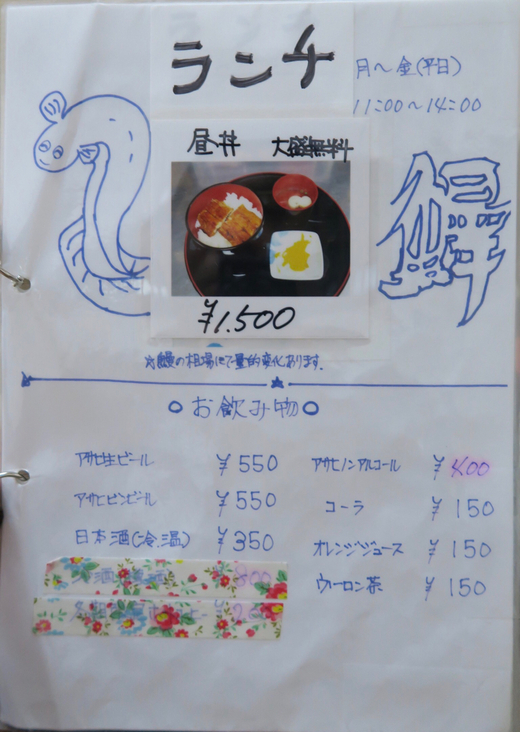 ランチ
月～金(平日)
11:00～14:00
昼丼 大盛無料
¥1.500
の相場にて量的変化あります。
お飲み物
アサヒ生ビール ¥550
アサヒビンビール ¥550
日本酒(冷.温) ¥350
アサヒノンアルコール ¥400
コーラ ¥150
オレンジジュース ¥150
ウーロン茶 ¥150